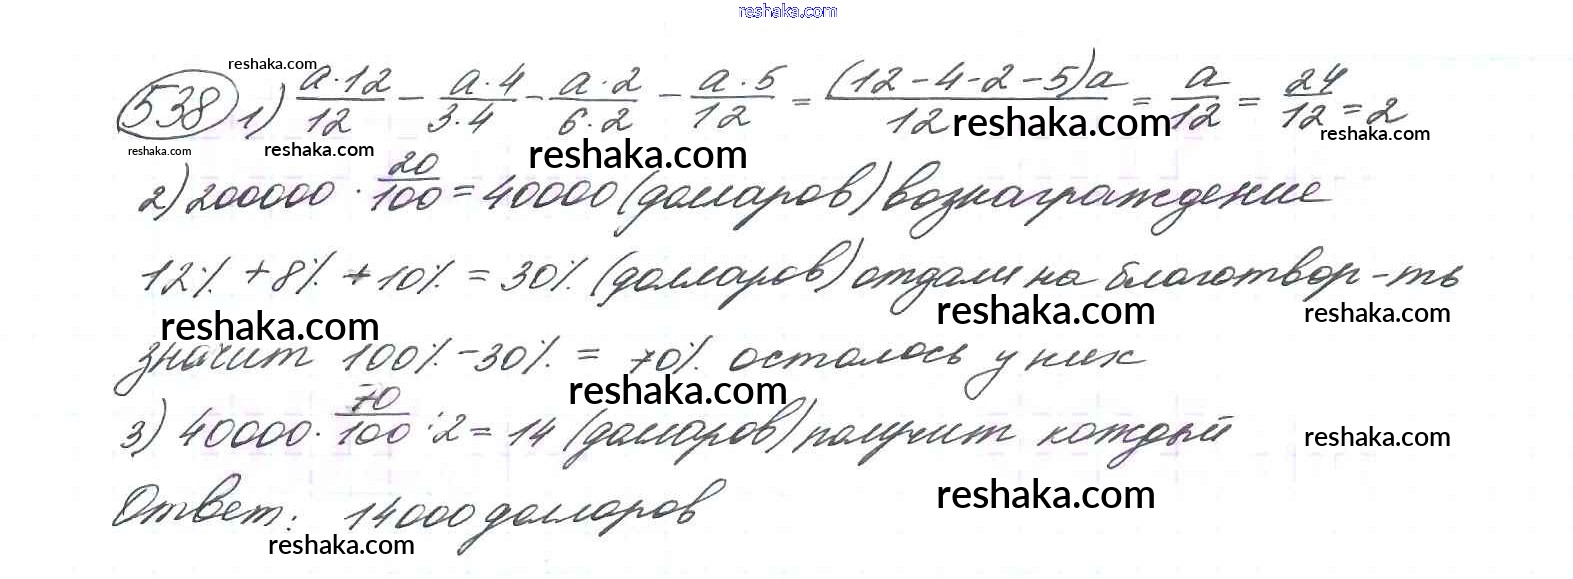 reshaka.com
reshaka.com
538 1) a·12/12 - a·4/3·4 - a·2/6·2 - a·5/12 = (12-4-2-5)a/12 = a/12 = 24/12 = 2
reshaka.com reshaka.com reshaka.com reshaka.com reshaka.com
2) 200000 · 20/100 = 40000 (долларов) вознаграждение
12% + 8% + 10% = 30% (долларов) отдали на благотвор-ть
reshaka.com reshaka.com reshaka.com
значит 100% - 30% = 70% осталось у них
reshaka.com
3) 40000 · 70/100 : 2 = 14 (долларов) получит каждый
reshaka.com
reshaka.com
Ответ: 14000 долларов
reshaka.com